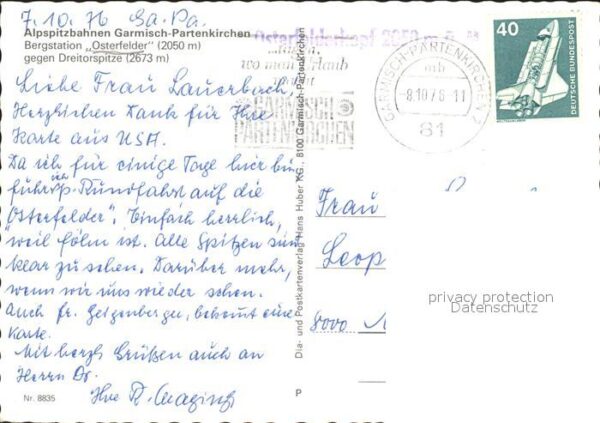 7.10.76 Ga.Pa.
Alpspitzbahnen Garmisch-Partenkirchen
Bergstation "Osterfelder" (2050 m)
gegen Dreitorspitze (2673 m)
Liebe Frau Lauerbach,
Herzlichen Dank für Ihre
Karte aus USA.
Da ich für einige Tage hier bin
führ ich Rundfahrt auf die
"Osterfelder". Einfach herrlich,
weil föhn ist. Alle Spitzen sind
klar zu sehen. Darüber mehr,
wenn wir uns wieder sehen.
Auch fr. Geigenberger, bekommt eine
Karte.
Mit herzl. Grüßen auch an
Herrn Dr.
Ihre R.
Nr. 8835
Dia- und Postkartenverlag Hans Huber KG., 8100 Garmisch-Partenkirchen
P
Osterfelderkopf 2050 m
wo man Urlaub
GARMISCH
PARTENKIRCHEN
GARMISCH-PARTENKIRCHEN 2
mb
-8.10.76-11
81
40
DEUTSCHE BUNDESPOST
Frau
Leop
8000
privacy protection
Datenschutz